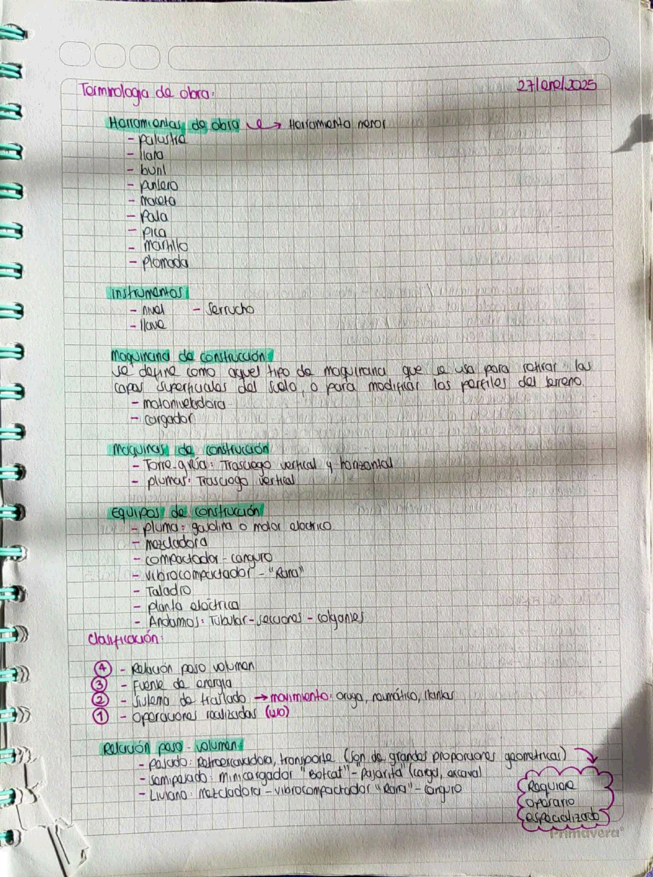 Terminologia de obra:
27/ene/2025
Herramientas de obra → Herramienta menor
- palustre
- llana
- buril
- puntero
- maceta
- pala
- pica
- martillo
- plomada
instrumentos
- nivel - serrucho
- llave
Maquinaria de construcción
se define como aquel tipo de maquinaria que se usa para retirar las
capas superficiales del suelo, o para modificar los perfiles del terreno.
- motoniveladora
- cargador
Maquinas de construcción
- Torre-grúa: Trasciego vertical y horizontal
- plumas: Trasciego vertical
Equipos de construcción
- pluma: gasolina o motor electrico
- mezcladora
- compactador - canguro
- vibrocompactador - "Rana"
- Taladro
- planta eléctrica
- Andamios: Tubular - secciones - colgantes
Clasificación:
④ - Relación peso volumen
③ - Fuente de energía
② - Sistema de traslado → movimiento: oruga, neumático, llantas
① - Operaciones realizadas (uso)
Relación peso - volumen
- pesado: Retroexcavadora, transporte (son de grandes proporciones geometricas)
- semipesado: minicargador "Bobcat" - Pajarita (carga, excava)
- Liviano: Mezcladora - vibrocompactador "Rana" - canguro
Requiere
operario
especializado
Primavera